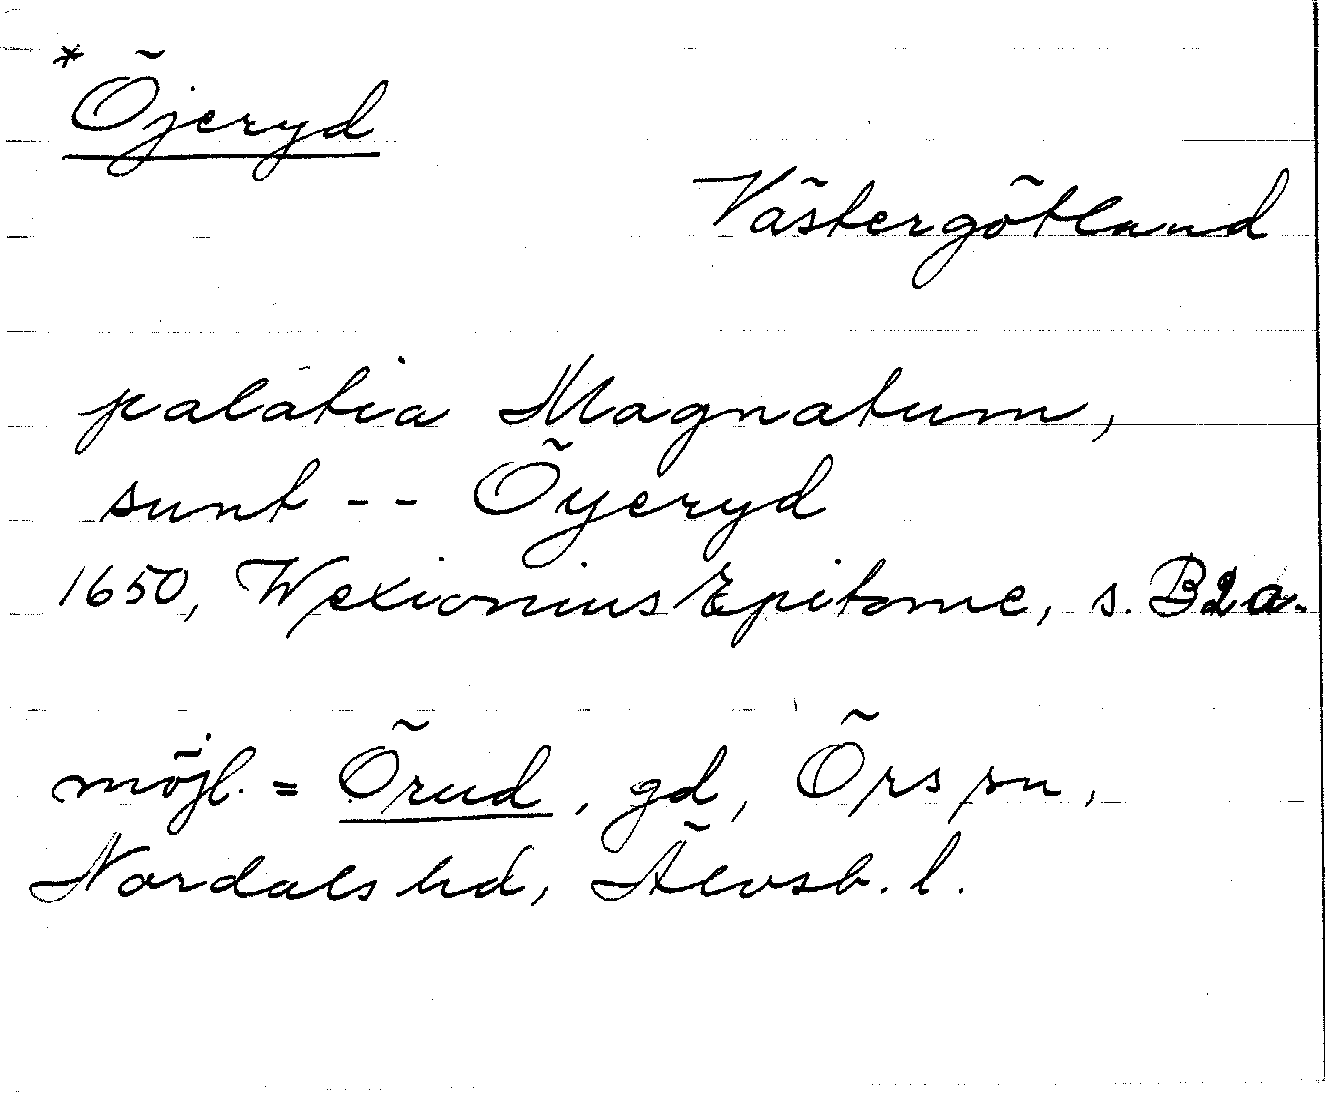 *Öjeryd
Västergötland
palatia Magnatum,
sunt -- Öyeryd
1650, Wexionius Epitome, s. B2a.
möjl. = Örud, gd, Örs sn,
Nordals hd, Älvsb. l.